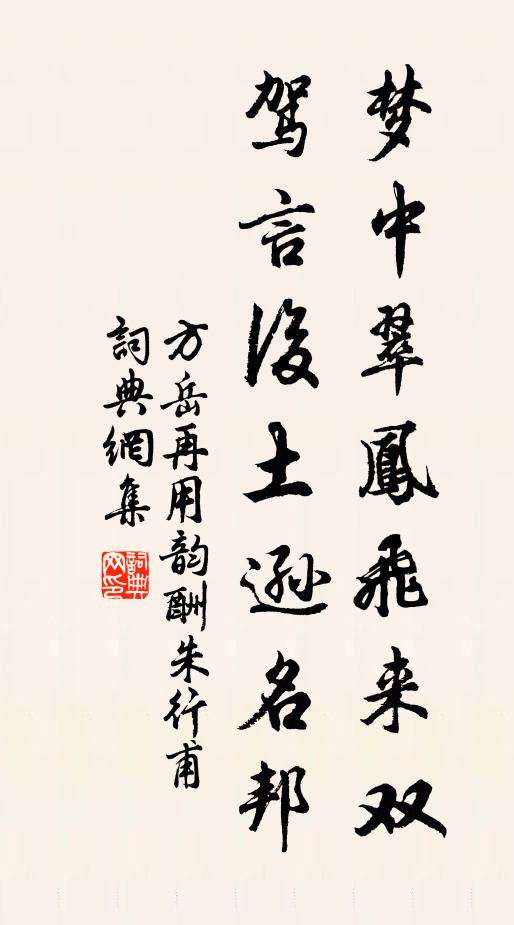 梦中翠鳳飛来双
驾言後土遜名邦
方岳再用韵酬朱行甫
詞典網集
詞典网印